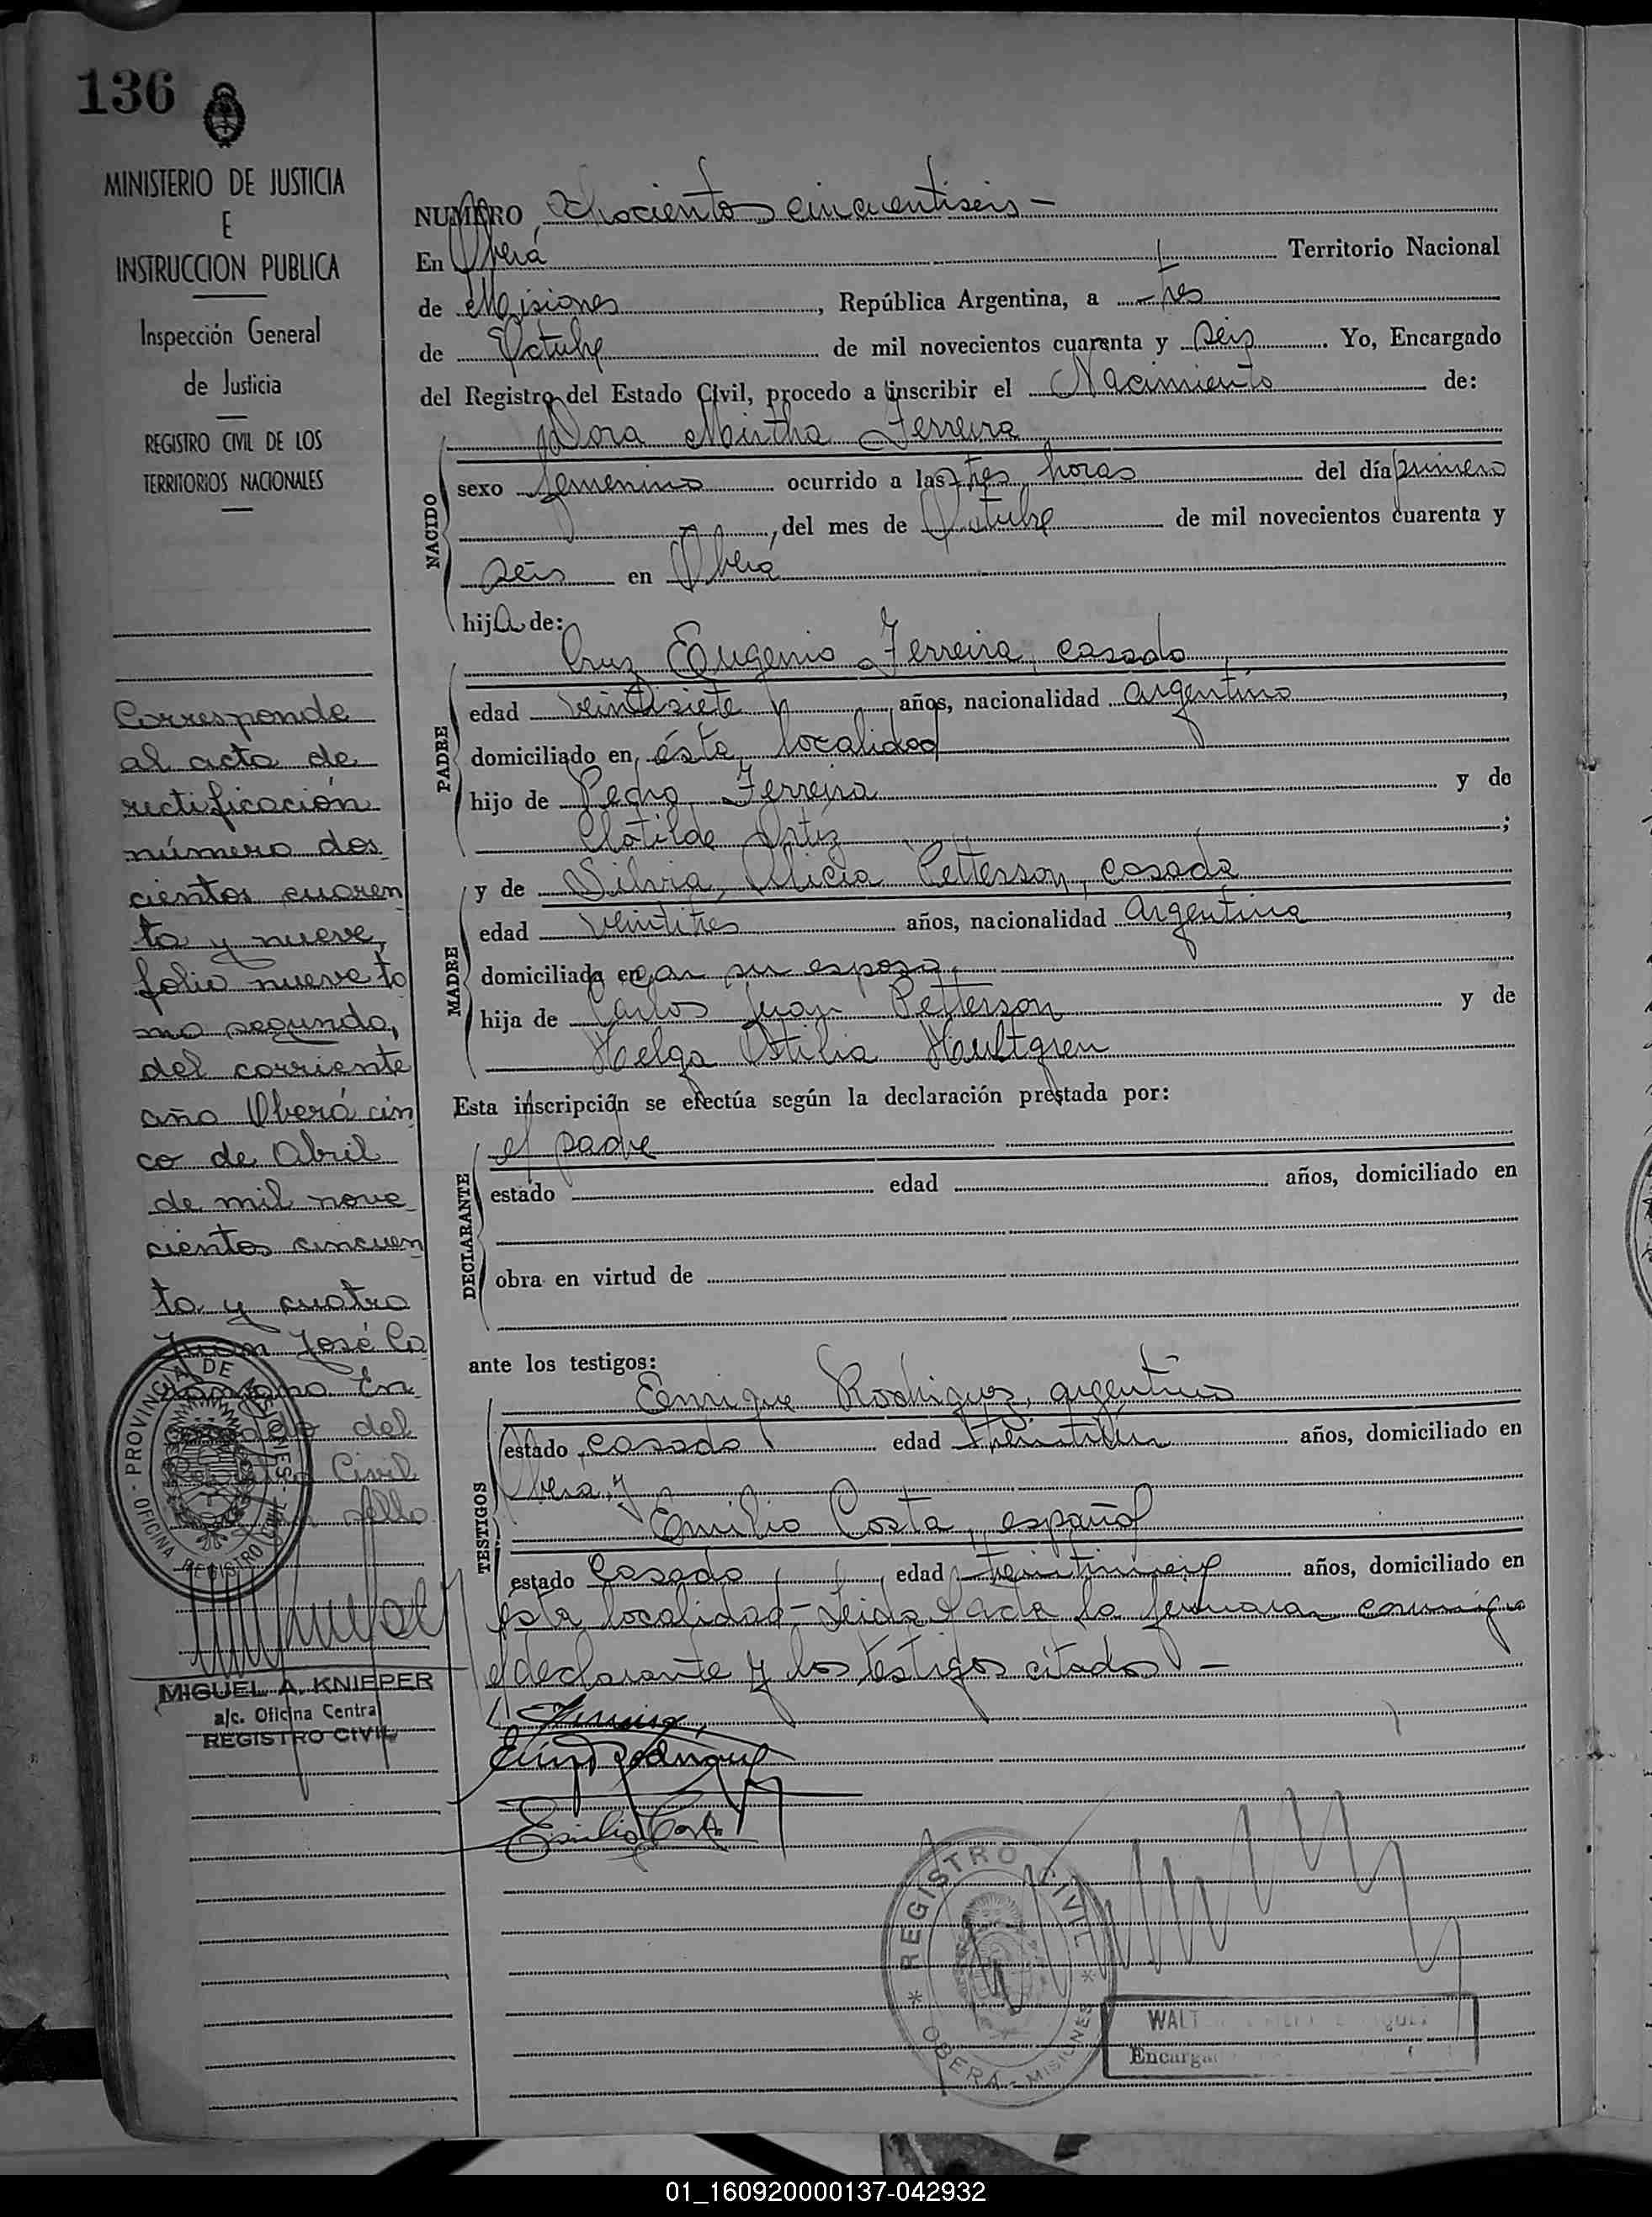 136
MINISTERIO DE JUSTICIA
E
INSTRUCCION PUBLICA
Inspección General
de Justicia
REGISTRO CIVIL DE LOS
TERRITORIOS NACIONALES
Corresponde
al acta de
rectificación
número dos
cientos cuaren
ta y nueve,
folio nueve to
mo segundo,
del corriente
año Oberá cin
co de Abril
de mil nove
cientos cincuen
ta y cuatro
Juan José
del
Civil
sello
PROVINCIA DE MISIONES
OFICINA REGISTRO
MIGUEL A. KNIEPER
a/c. Oficina Central
REGISTRO CIVIL
NUMERO Ochocientos cincuentiseis -
En Oberá Territorio Nacional
de Misiones, República Argentina, a - tres
de Octubre de mil novecientos cuarenta y seis. Yo, Encargado
del Registro del Estado Civil, procedo a inscribir el Nacimiento de:
NACIDO
Dora Mirtha Ferreira
sexo femenino ocurrido a las tres horas del día primero
, del mes de Octubre de mil novecientos cuarenta y
seis en Oberá
hija de:
PADRE
Cruz Eugenio Ferreira, casado
edad veintisiete años, nacionalidad argentino,
domiciliado en ésta localidad
hijo de Pedro Ferreira y de
Clotilde Ortiz;
MADRE
y de Silvia Alicia Petterson, casada
edad veintitres años, nacionalidad Argentina,
domiciliada en con su esposo,
hija de Carlos Juan Petterson y de
Helga Otilia Hultgren
Esta inscripción se efectúa según la declaración prestada por:
DECLARANTE
el padre
estado edad años, domiciliado en
obra en virtud de
ante los testigos:
TESTIGOS
Enrique Rodriguez, argentino
estado casado edad años, domiciliado en
Oberá, y
Emilio Costa, español
estado Casado edad años, domiciliado en
esta localidad - Leida el acta la firmaron conmigo
el declarante y los testigos citados -
Emilio Costa
REGISTRO CIVIL
OBERA - MISIONES
WALT
Encarga
01_160920000137-042932